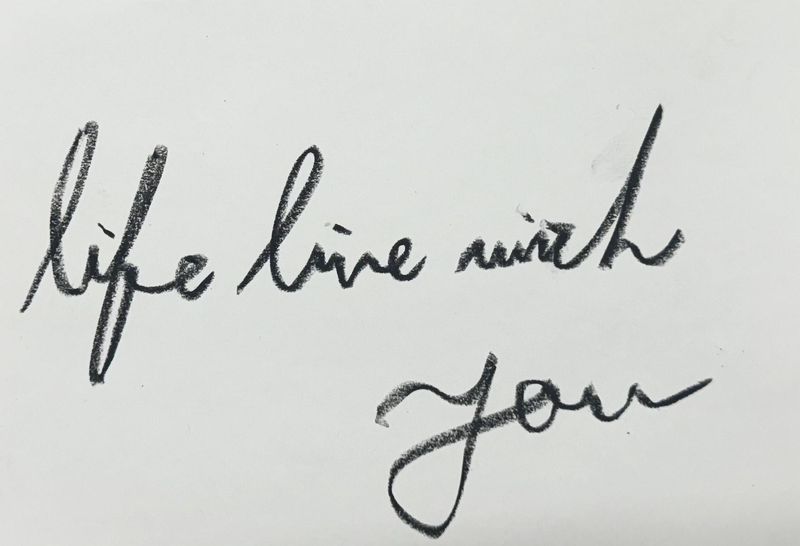 life live with
you